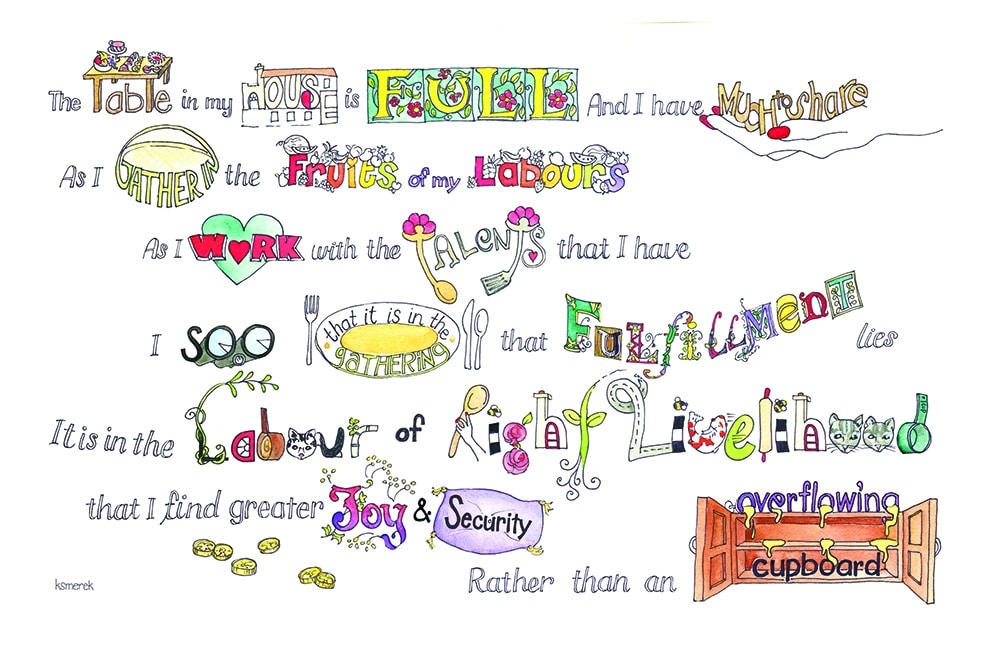 The Table in my House is FULL And I have Much to share
As I GATHER IN the Fruits of my Labours
As I WORK with the Talents that I have
I see that it is in the gathering that Fulfillment lies
It is in the Labour of Right Livelihood
that I find greater Joy & Security
Rather than an overflowing cupboard
ksmerek